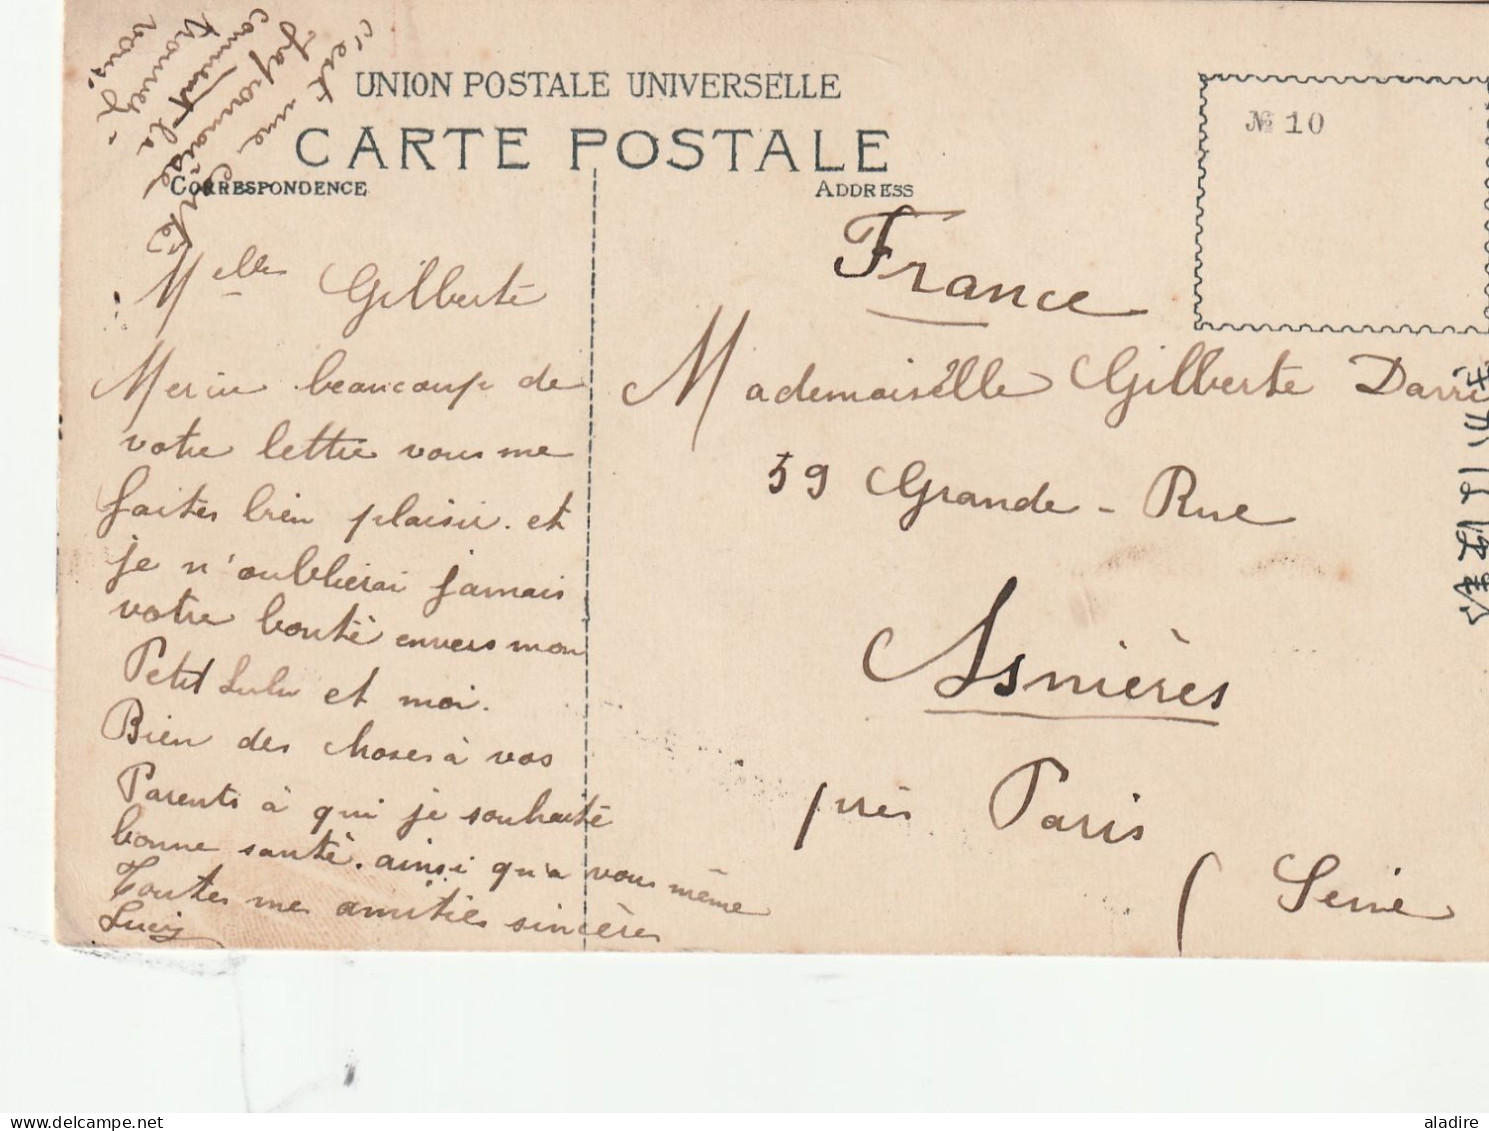 c'est une Carte
Japonaise
comment la
trouvez-
vous.
UNION POSTALE UNIVERSELLE
CARTE POSTALE
CORRESPONDENCE
ADDRESS
№ 10
Melle Gilberte
Merci beaucoup de
votre lettre vous me
faites bien plaisir. et
je n'oublierai jamais
votre bonté envers mon
Petit Lulu et moi.
Bien des choses à vos
Parents à qui je souhaite
bonne santé. ainsi qu'a vous même
Toutes me amitiés sincères
Lucy
France
Mademoiselle Gilberte
59 Grande-Rue
Asnières
près Paris
(Seine
aladire